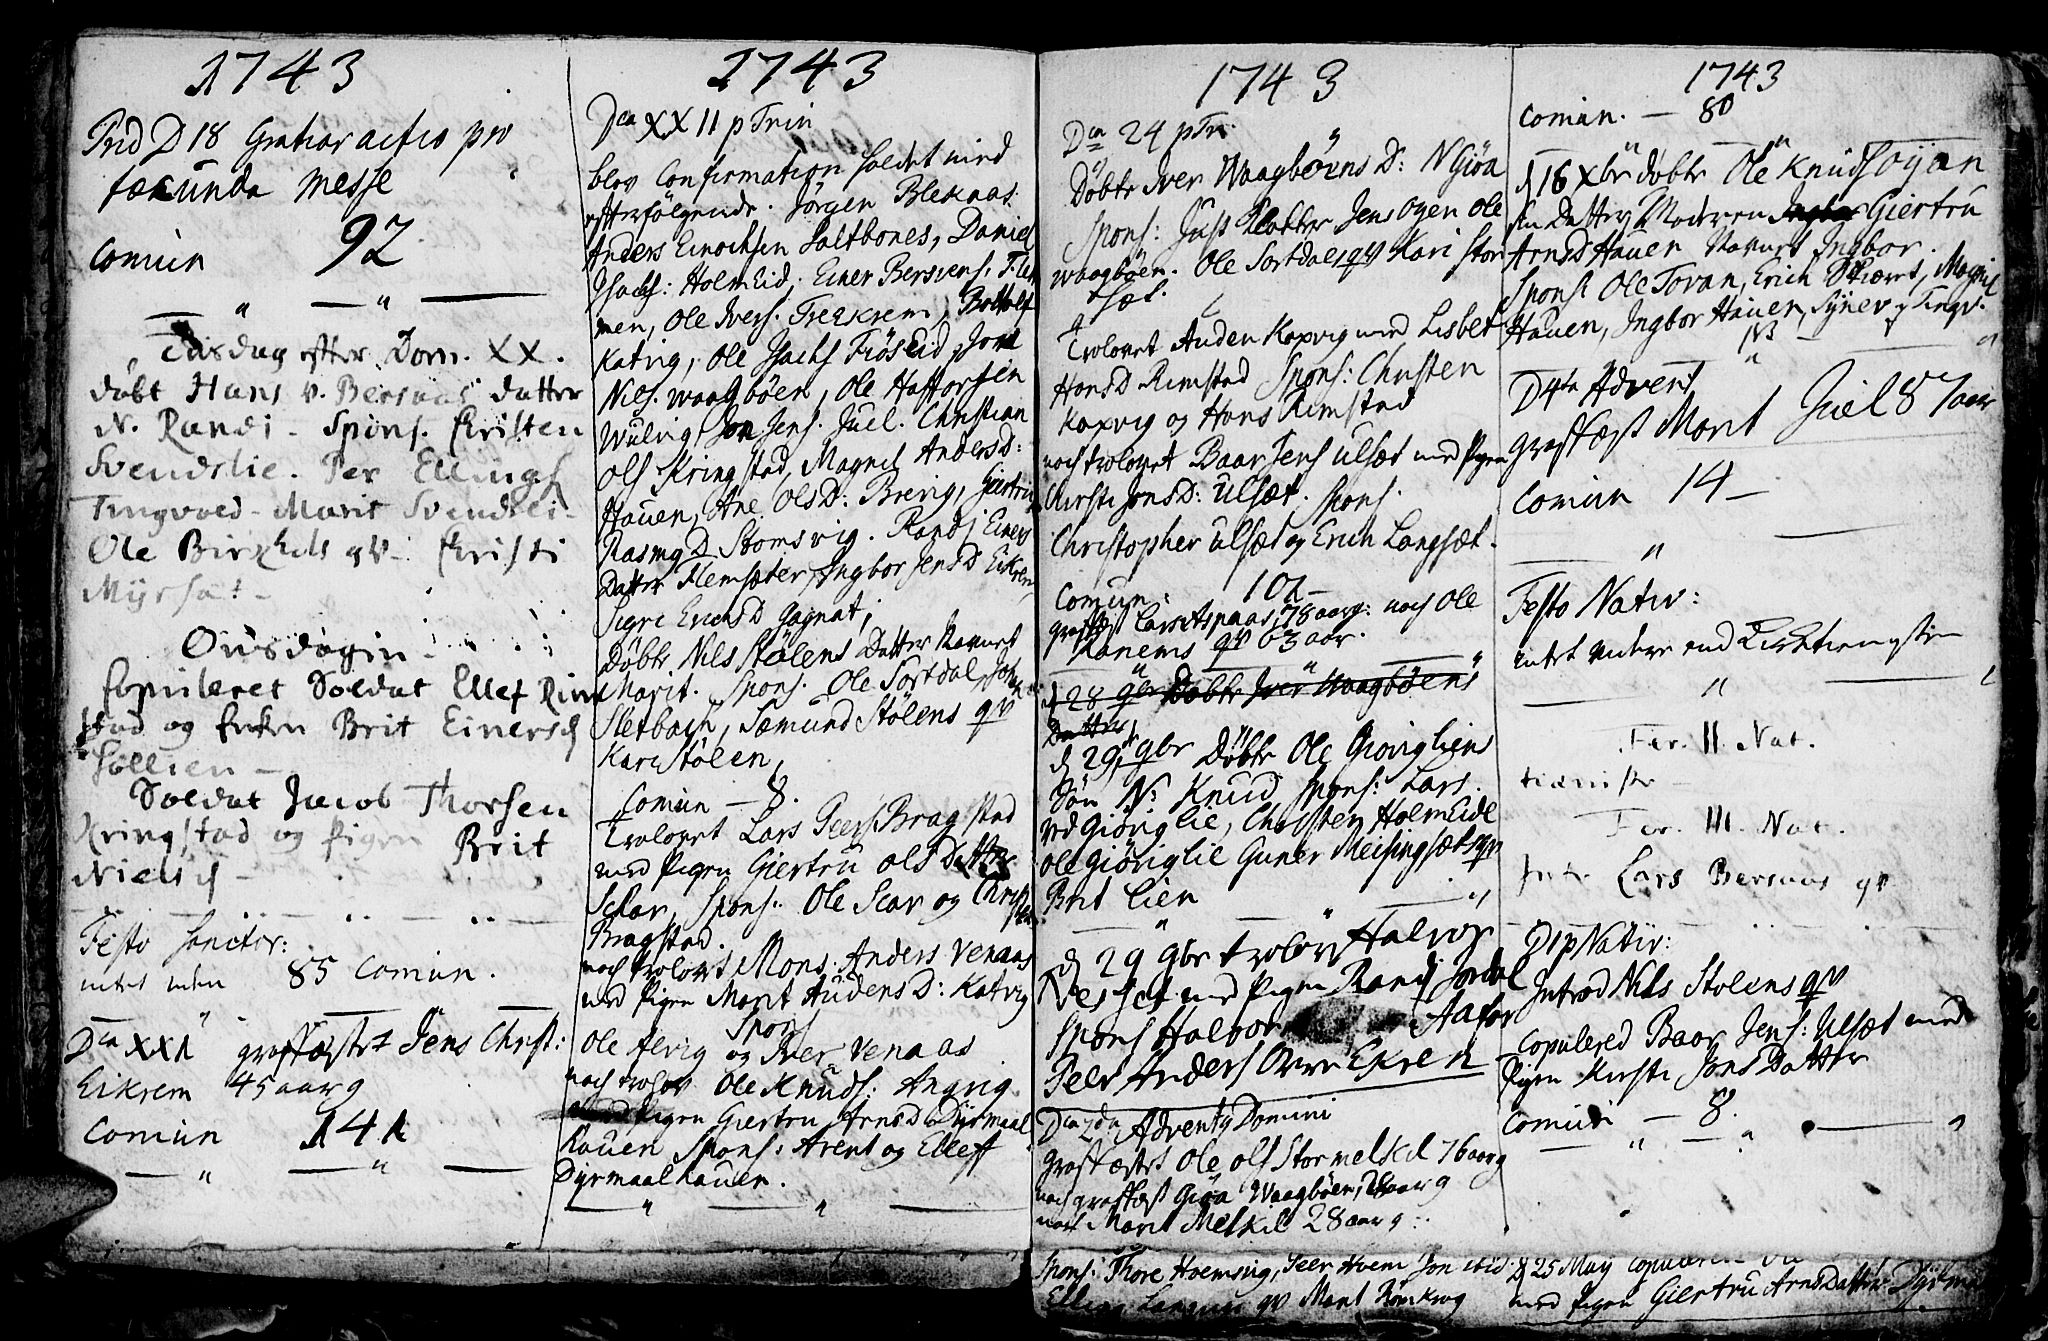 1743
Frid D 18 Gratiar actio pro
fæcunda Messe
Comun 92
Tirsdag efter Dom. XX.
döbt Hans v. Bersaas datter
N. Randi - Spons. Kristen
Svendslie. Per Ellings
Tingvoed - Marit Svendsli -
Ole Birkelds qv - Kristi
Myrsæt -
Onsdagen
Copuleret Soldat Ellef Rim
stad og Enken Brit Einersd
Sollien -
Soldat Jacob Thorsen
Kringstad og Pigen Brit
Nielsd -
Festo Sanctor:
intet uden 85 Comun.
Dca XXI graffæstet Jens Christ:
Eikrem 45 aar g
Comun 141
1743
Dca XX II p Trin
blev Confirmation holdet med
efterfölgende. Jörgen Bleknas
Anders Einochsen Saltbones, Daniel
Isachs: Holmeid, Einer Bersvens:
men, Ole Ivers. Trerkrem,
Katvig, Ole Isachs Fiöseid, Jon
Nils. Waagböen, Ole Haftorsen
Wulvig, Jon Jens. Juel. Christian
Ols Kringstad, Magnil Andersd:
Hauen, Ane Olsd: Brevig, Giertru
Rasmusd Stomsvig. Randi Einers
Datter Flemsæter, Ingbor Jensd Eikrem
Sigri Erichsd Gagnat,
Döbte Nils Stölens Datter Navnet
Marit. Spons. Ole Sortdal, Joh
Sletbach, Sæmund Stölens qv
Kari Stölen,
Comun - 8.
Trolovet Lars Peers Bragstad
med Pigen Giertru Ols Datter
Schar, Spons. Ole Scar og Christ
Bragstad.
noch trolovet Mons: Anders Venaas
med Pigen Marit Audensd: Katvig
Spons
Ole Alvig og Iver Venaas
noch trolov Ole Knuds: Angvig
med Pigen Giertru Arnsd Dyrmaal
Hauen Spons: Arent og Elleff
Dyrmaalhauen.
1743
Dca 24 p Tr.
Döbte Iver Waagböens D: N Giöa
Spons: Just Jens Öyen Ole
Waagböen. Ole Sortdales qv Kari Stor
sæt.
Trolovet Auden Koxvig med Lisbet
Hansd Rimstad Spons: Christen
Koxvig og Hans Rimstad
noch trolovet Baar Jens Ulsæt med Pigen
Kirsti Jonsd: Ulsæt. Spons.
Christopher Ulsæt og Erich Langsæt.
Comun. 102 -
graffæst Lars Aspaas, 78 aar g: noch Ole
Ranems qv 63 aar.
d 28 9br Döbte Iver Waagböens
Datter
d 29 9br Döbte Ole Giövigliens
Sön N: Knud Spons: Lars.
ved Giöviglie, Christen Holmeide
Ole Giöviglie Guner Meisingsæt qv
Brit Lien
d 29 9br trolov Halvor
med Pigen Randi Jordal
Spons Halvor Aafar
Peer Anders Övre Ekren
Dca 2da Adventy Domini
Graffæstet Ole Ols Stormelkil 76 aar g
noch graffæst Giöa Waagböen, aar g
noch Marit Melkil 28 aar g:
Spons: Thore Hoemsvig, Peer Hoem Jon ibid:
qv Marit Romkrog
1743
Comun. - 80
d 16 Xbr döbte Ole Knuds Öyan
sin datter Moderen Giertru
Arnsd Hauen Navnet Ingbor.
Spons: Ole Toran, Erich Skiæret, Magnil
Hauen, Ingbor Hauen, Syner g Tingv.
D 4ta Advent
graffæst Marit Juel 87 aar
Comun 14 -
Festo Nativ:
intet videre end Kirketienesten
Fer. II. Nat.
tieniste -
Fer. III. Nat.
Intr Lars Bersaas qv
D 1 p Nativ:
Introd Nils Stolens qv
Copulered Baar Jens: Ulsæt med
Pigen Kirsti Jons Datter
Comun - 8.
d 25 May copuleret
med Pigen Giertru Arns Datter Dyrma